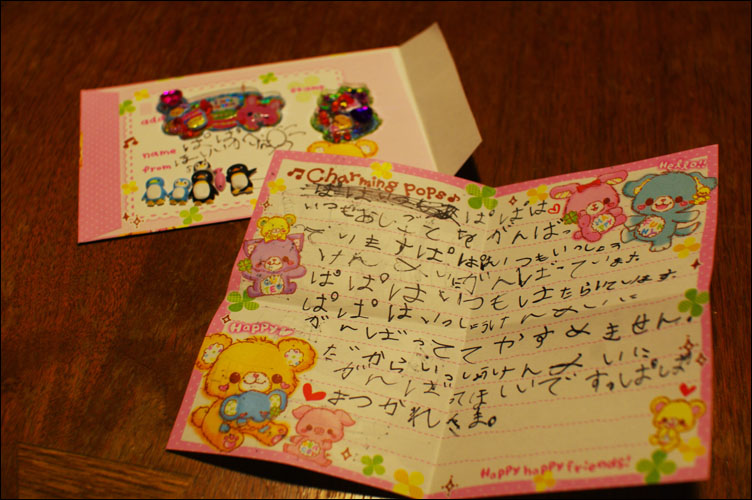 stamp
add
name
ぱぱ
from
Charming Pops
Hello
いつもおしごとながんばっ
ています ぱぱはいつもいっしょう
けんめいにがんばっています
ぱぱはいつもはたらいています
ぱぱはいっしょうけんめいに
がんばっててやすめません。
だからいっしょうけんめいに
がんばってほしいです ぱぱ
おつかれさま。
Happy
Happy happy friends!